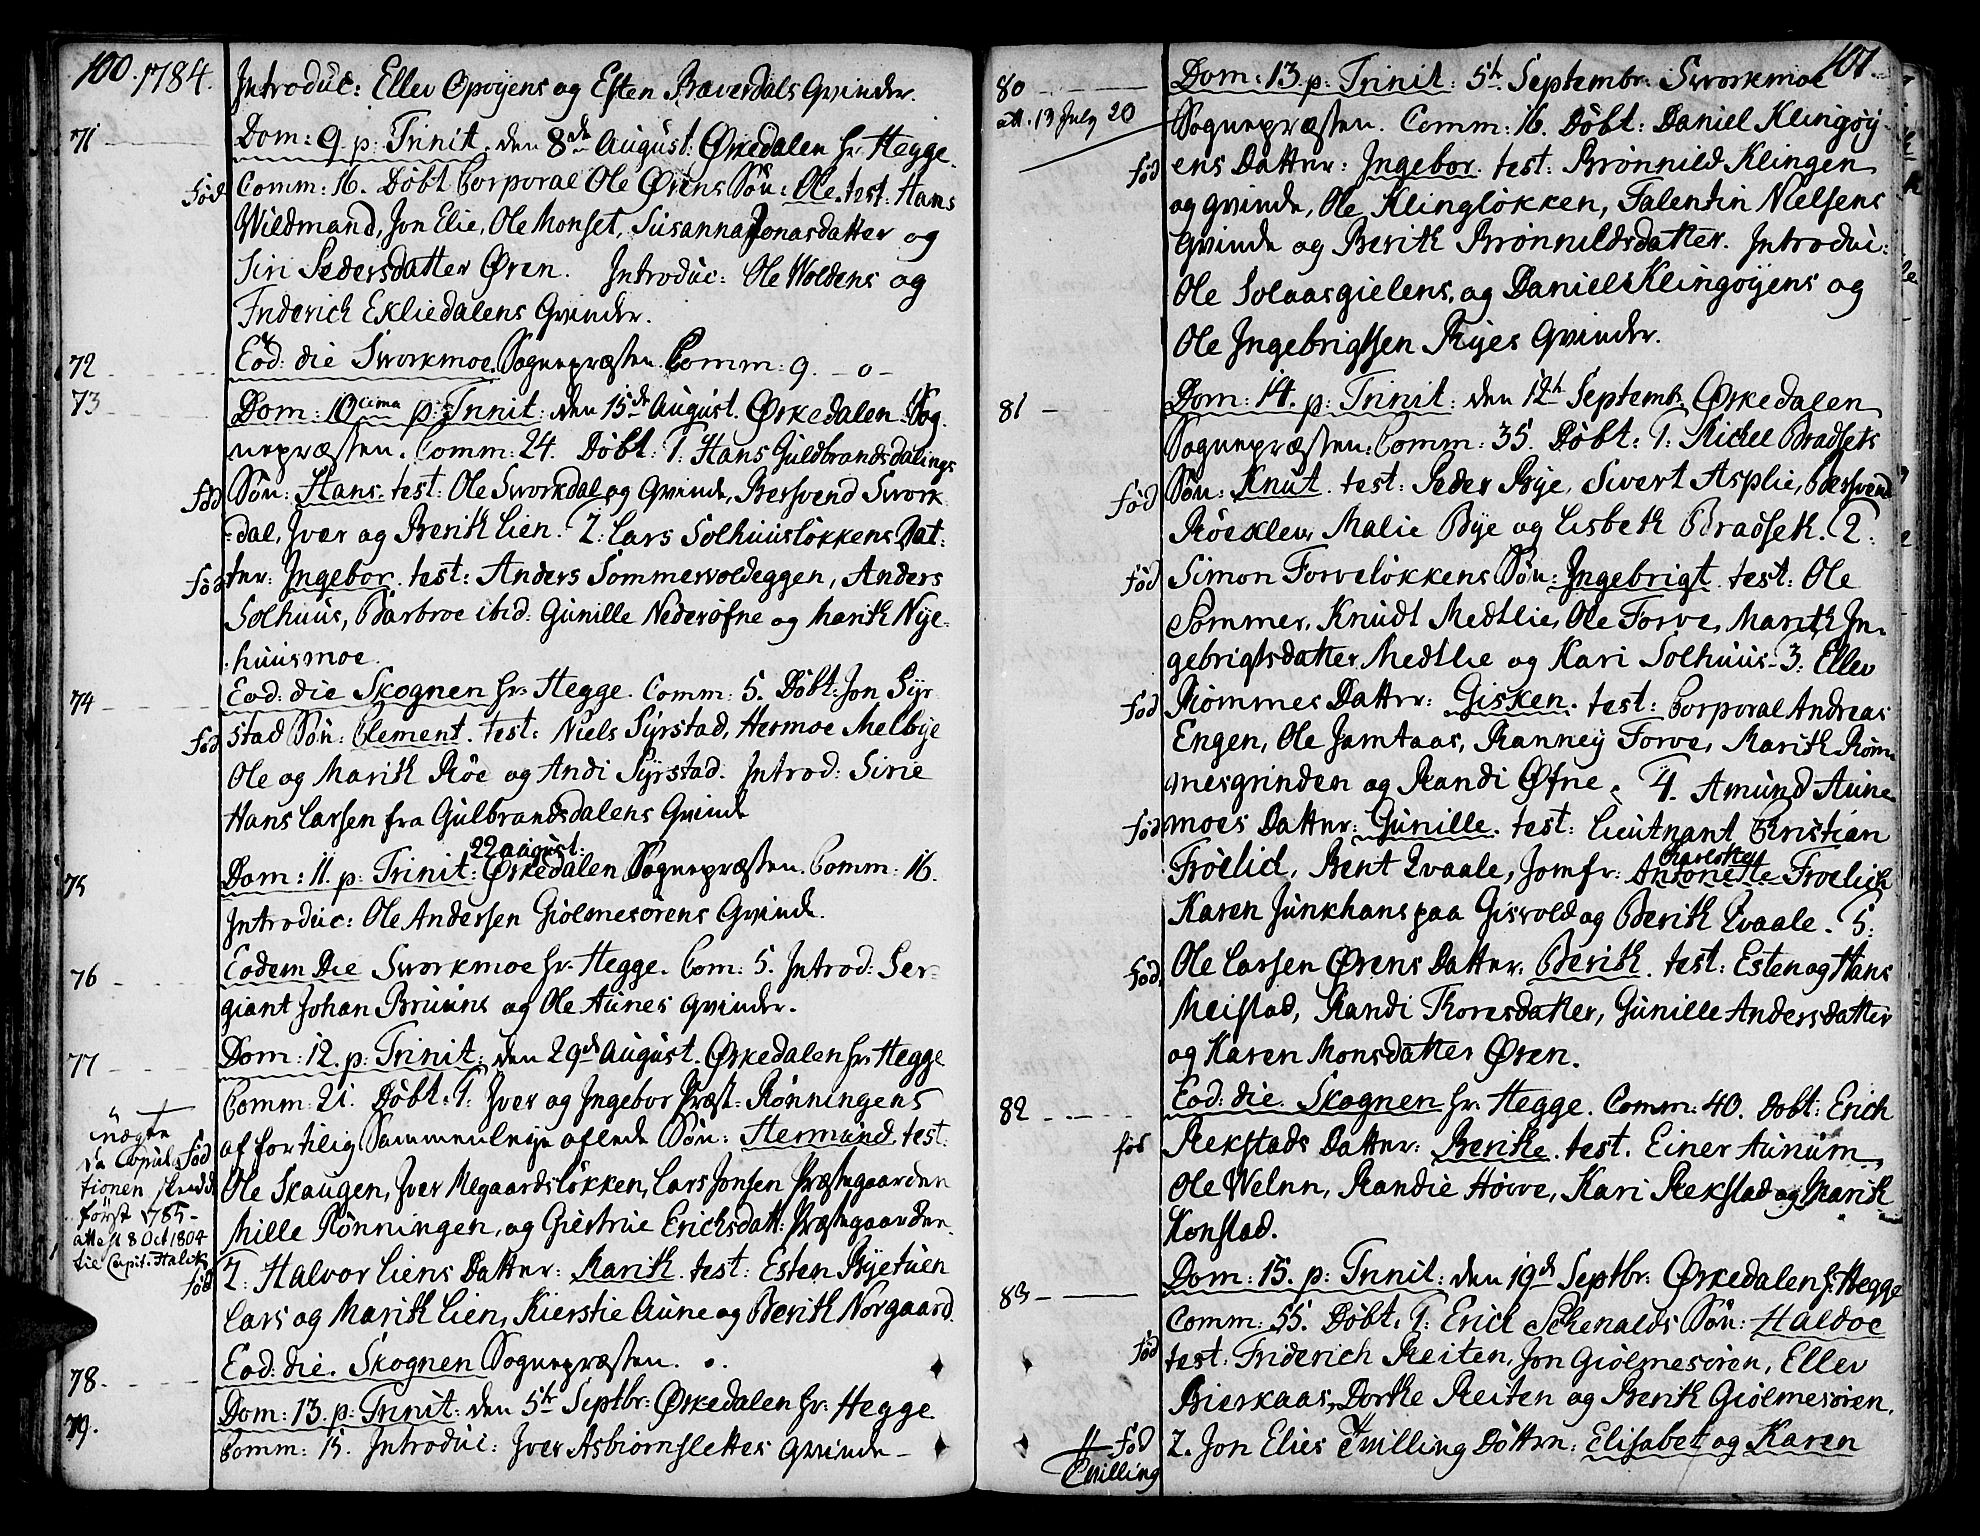 100. 1784.
Introduc: Ellev Opøyens og Esten Bæverdals Qvinder.
71 Dom: 9. p: Trinit. den 8de August: Ørkedalen Hr: Hegge.
Comm: 16. Døbt Corporal Ole Ørens Søn: Ole. test: Hans
fød
Wildmand, Jon Elie, Ole Monset, Susanna Jonasdatter og
Siri Pedersdatter Øren. Introduc: Ole Woldens og
Friderich Ekliedalens Qvinder.
72 Eod: die Sworkmoe. Sognepræsten. Comm: 9. -o-
73 Dom: 10cima p: Trinit: den 15de August. Ørkedalen Sog-
nepræsten. Comm: 24. Døbt: 1. Hans Guldbrandsdalings
fød Søn: Hans. test: Ole Sworkdal og Qvinde, Bersvend Swork
-dal, Iver og Berith Lien. 2. Lars Solhuusløkkens Dat-
fød ter: Ingebor. test: Anders Sommervoldeggen, Anders
Solhuus, Barbroe ibid: Gunille Nederøfne og Marith Nye-
huusmoe.
74 Eod: die Skognen Hr: Hegge. Comm: 5. Døbt: Jon Syr-
fød stad Søn: Clement. test: Niels Syrstad, Hermoe Melbye
Ole og Marith Røe og Andi Syrstad. Introd: Sirie
Hans Larsen fra Gulbrandsdalens Qvinde
22 august:
75 Dom: 11. p: Trinit: Ørkedalen Sognepræsten. Comm: 16.
Introduc: Ole Andersen Giølmesørens Qvinde.
76 Eodem Die Sworkmoe Hr: Hegge. Com: 5. Introd: Ser-
giant Johan Bruuns og Ole Aunes Qvinder.
77 Dom: 12. p: Trinit: den 29de August. Ørkedalen Hr: Hegge
Comm: 21. Døbt: 1. Iver og Ingebor Præst-Rønningens
uægte
da Copula-
tionen skedde
først 1785-
att. 8 Oct 1804
til Capit.
fød af fortilig Sammenleye aflede Søn: Hermund. test:
Ole Skaugen, Iver Megaardsløkken, Lars Jonsen Præstegaarden
Mille Rønningen, og Giertrue Erichsdatt: Præstegaarden.
fød 2. Halvor Liens Datter: Marith. test: Esten Byetuen
Lars og Marith Lien, Kierstie Aune og Berith Norgaard.
78. Eod: die. Skognen Sognepræsten. o.
79. Dom: 13. p: Trinit: den 5te Septbr: Ørkedalen Hr: Hegge
Comm: 15. Introduc: Iver Asbiørnslettes Qvinde-
101.
80 Dom: 13. p: Trinit: 5te Septembr: Sworkmoe
att. 13 July 20
Sognepræsten. Comm: 16. Døbt: Daniel Klingøy-
fød ens Datter: Ingebor. test: Brønnild Klingen
og Qvinde, Ole Klingløkken, Falentin Nielsens
Qvinde og Berith Brønnildsdatter. Introduc:
Ole Solaasgielens, og Daniel Klingøyens og
Ole Ingebrigtsen Ryes Qvinder.
81 Dom: 14. p: Trinit: den 12te Septemb: Ørkedalen
Sognepræsten: Comm: 35. Døbt: 1. Michel Bradsets
fød Søn: Knut. test: Peder Bye, Sivert Asplie, Bersvend
Røeklev, Malie Bye og Lisbeth Bradseth. 2:
fød Simon Forveløkkens Søn: Ingebrigt. test: Ole
Sommer, Knudt Medtlie, Ole Forve, Marith In-
gebrigtsdatter Medtlie og Kari Solhuus. 3. Ellev
fød Rømmes Datter: Gisken. test: Corporal Andreas
Engen, Ole Jamtaas, Ranney Forve, Marith Røm-
mesgrinden og Randi Øfne. 4. Amund Aune
fød moes Datter: Gunille. test: Lieutnant Christian
Frøelid, Bent Qvaale, Jomfr: Antonette Froelich
Charlotte
Karen Junkhans paa Gisvold og Berith Qvaale. 5:
fød Ole Larsen Ørens Datter: Berith. test: Esten og Hans
Meistad, Randi Thoresdatter, Gunille Andersdatter
og Karen Monsdatter Øren.
82 Eod: die. Skognen Hr: Hegge. Comm: 40. Døbt: Erich
fød Rekstads Datter: Berithe. test. Einer Aunum,
Ole Welnn, Randie Høwe, Kari Rekstad og Marith
Konstad.
83 Dom: 15. p: Trinit: den 19de Septbr: Ørkedalen Hr: Hegge
Comm: 55. Døbt: 1. Erich Schenalds Søn: Haldoe
fød test: Friderich Reiten, Jon Giølmesøren, Ellev
Bierkaas, Dorthe Reiten og Berith Giølmesøren.
fød 2. Jon Elies Tvilling Døttre: Elisabet og Karen
Tvilling